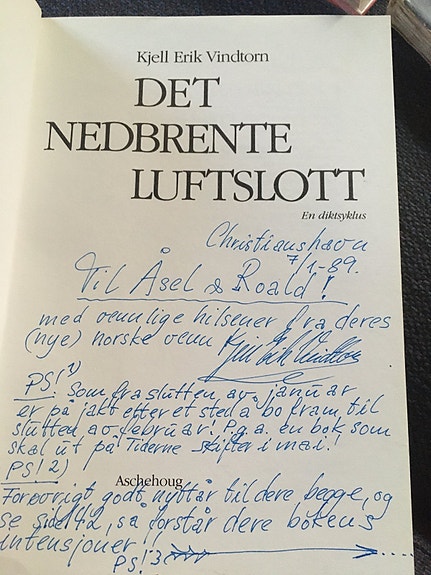 Kjell Erik Vindtorn
DET
NEDBRENTE
LUFTSLOTT
En diktsyklus
Christianshavn
7/1-89.
Til Åsel & Roald!
med vennlige hilsener fra deres
(nye) norske venn Kjell Erik Vindtorn
PS! 1)
Som fra slutten av januar
er på jakt etter et sted å bo fram til
slutten av februar! P.g.a. en bok som
skal ut på Tiderne Skifter i mai!
PS! 2)
Aschehoug
Forøvrigt godt nyttår til dere begge, og
se side 142, så forstår dere bokens
intensjoner!
PS! 3